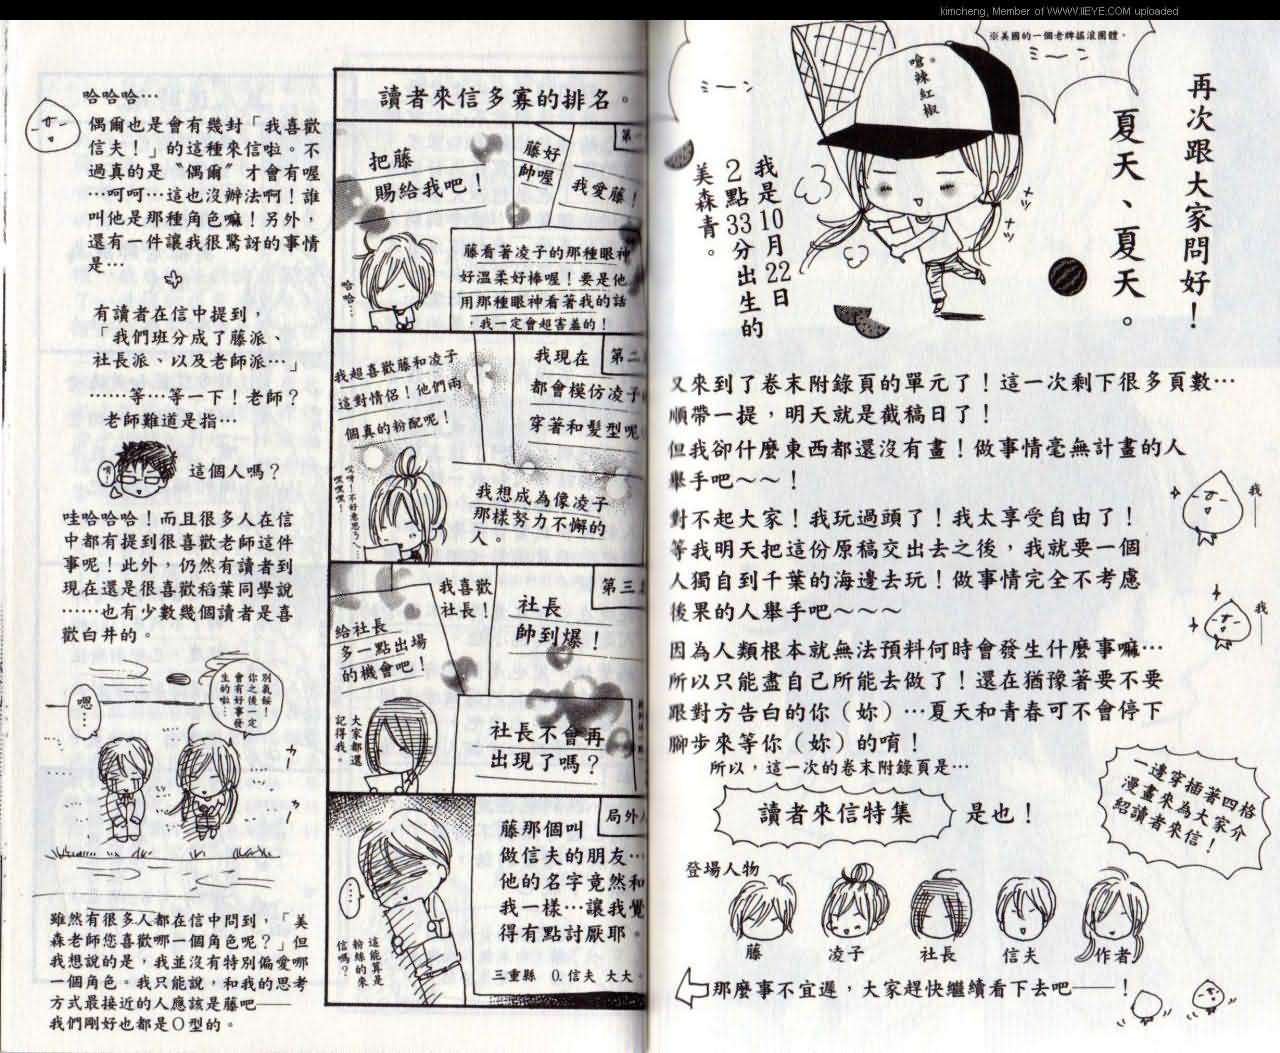 kimcheng, Member of WWW.IIEYE.COM uploaded
※美國的一個老牌搖滾團體。
ミーン
ミーン
嗆辣紅椒。
再次跟大家問好！
夏天、夏天。
我是10月22日
2點33分出生的
美森青。
又來到了卷末附錄頁的單元了！這一次剩下很多頁數…
順帶一提，明天就是截稿日了！
但我卻什麼東西都還沒有畫！做事情毫無計畫的人
舉手吧～～！
我
對不起大家！我玩過頭了！我太享受自由了！
等我明天把這份原稿交出去之後，我就要一個
人獨自到千葉的海邊去玩！做事情完全不考慮
後果的人舉手吧～～～
我
因為人類根本就無法預料何時會發生什麼事嘛…
所以只能盡自己所能去做了！還在猶豫著要不要
跟對方告白的你（妳）…夏天和青春可不會停下
腳步來等你（妳）的唷！
所以，這一次的卷末附錄頁是…
讀者來信特集
是也！
一邊穿插著四格
漫畫來為大家介
紹讀者來信！
登場人物
藤
凌子
社長
信夫
作者
那麼事不宜遲，大家趕快繼續看下去吧——！
讀者來信多寡的排名。
第一
把藤
賜給我吧！
藤好
帥喔
我愛藤！
藤看著凌子的那種眼神
好溫柔好棒喔！要是他
用那種眼神看著我的話
，我一定會超害羞的！
哈哈…
第二
我超喜歡藤和凌子
這對情侶！他們兩
個真的粉配呢！
我現在
都會模仿凌子
穿著和髮型呢
我想成為像凌子
那樣努力不懈的
人。
第三
我喜歡
社長！
社長
帥到爆！
給社長
多一點出場
的機會吧！
社長不會再
出現了嗎？
大家都還
記得我。
局外
藤那個叫
做信夫的朋友…
他的名字竟然和
我一樣…讓我覺
得有點討厭耶。
三重縣　O.信夫 大大。
這能算是
粉絲的來
信嗎？
哈哈哈…
偶爾也是會有幾封「我喜歡
信夫！」的這種來信啦。不
過真的是〝偶爾〞才會有喔
…呵呵…這也沒辦法啊！誰
叫他是那種角色嘛！另外，
還有一件讓我很驚訝的事情
是…
有讀者在信中提到，
「我們班分成了藤派、
社長派、以及老師派…」
……等…等一下！老師？
老師難道是指…
這個人嗎？
哇哈哈哈！而且很多人在信
中都有提到很喜歡老師這件
事呢！此外，仍然有讀者到
現在還是很喜歡稻葉同學說
……也有少數幾個讀者是喜
歡白井的。
別氣餒！
你之後一定
會有好事發
生的啦…
嗯…
雖然有很多人都在信中問到，「美
森老師您喜歡哪一個角色呢？」但
我想說的是，我並沒有特別偏愛哪
一個角色。我只能說，和我的思考
方式最接近的人應該是藤吧——
我們剛好也都是O型的。